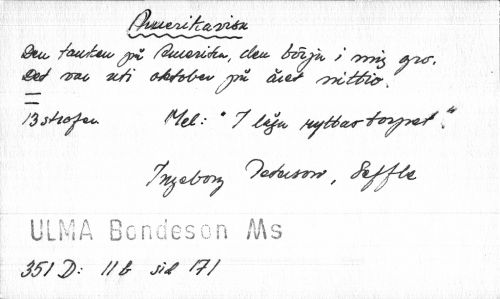 Amerikavisa
Den tanken på Amerika, den börja i mig gro.
Det var uti oktober på året nittio.
13 strofer Mel: "I låga ryttartorpet."
Ingeborg Peterson, Seffle
ULMA Bondeson Ms
351 D: 11 b sid 171